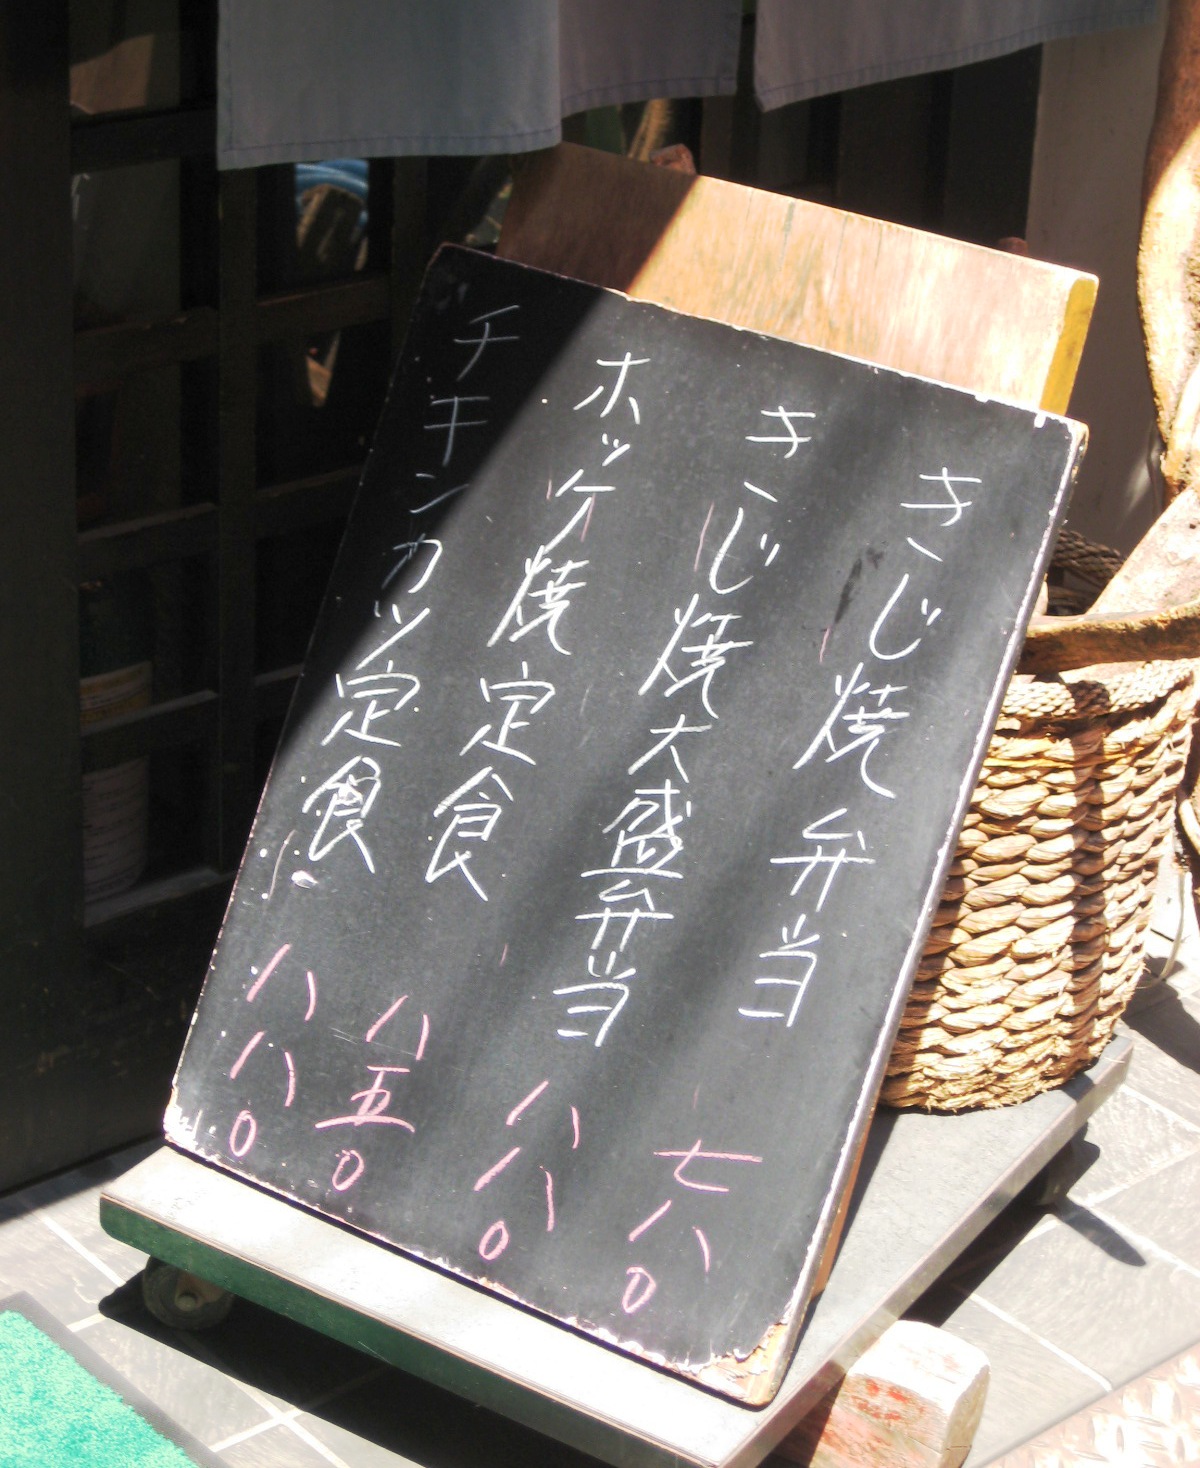 きじ焼弁当 七八〇
きじ焼大盛弁当 八八〇
ホッケ焼定食 八五〇
チキンカツ定食 八八〇